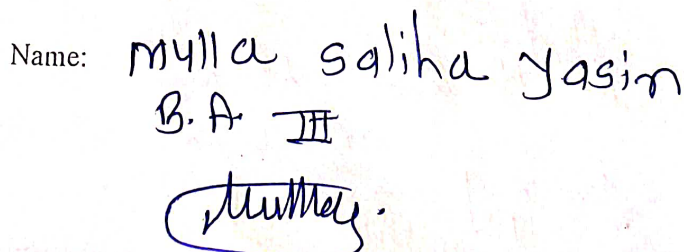 Name: Mulla Saliha Yasin
B.A. III